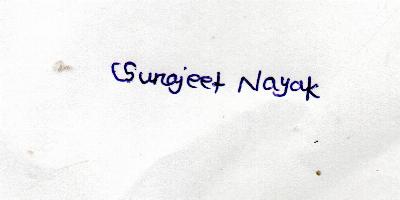 Surojeet Nayak